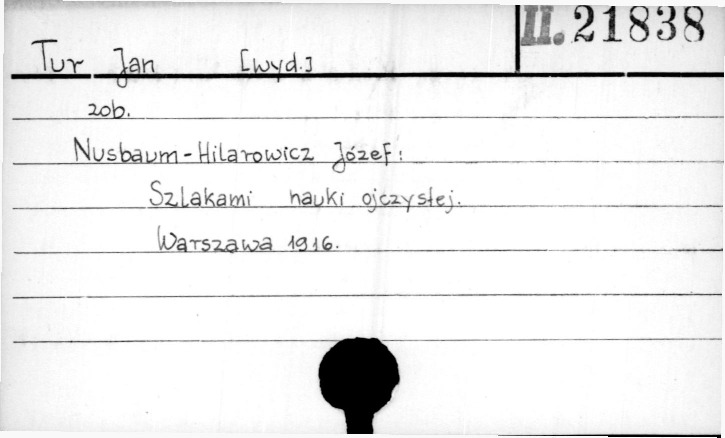 II. 21838
Tur Jan [wyd.]
zob.
Nusbaum-Hilarowicz Józef:
Szlakami nauki ojczystej.
Warszawa 1916.